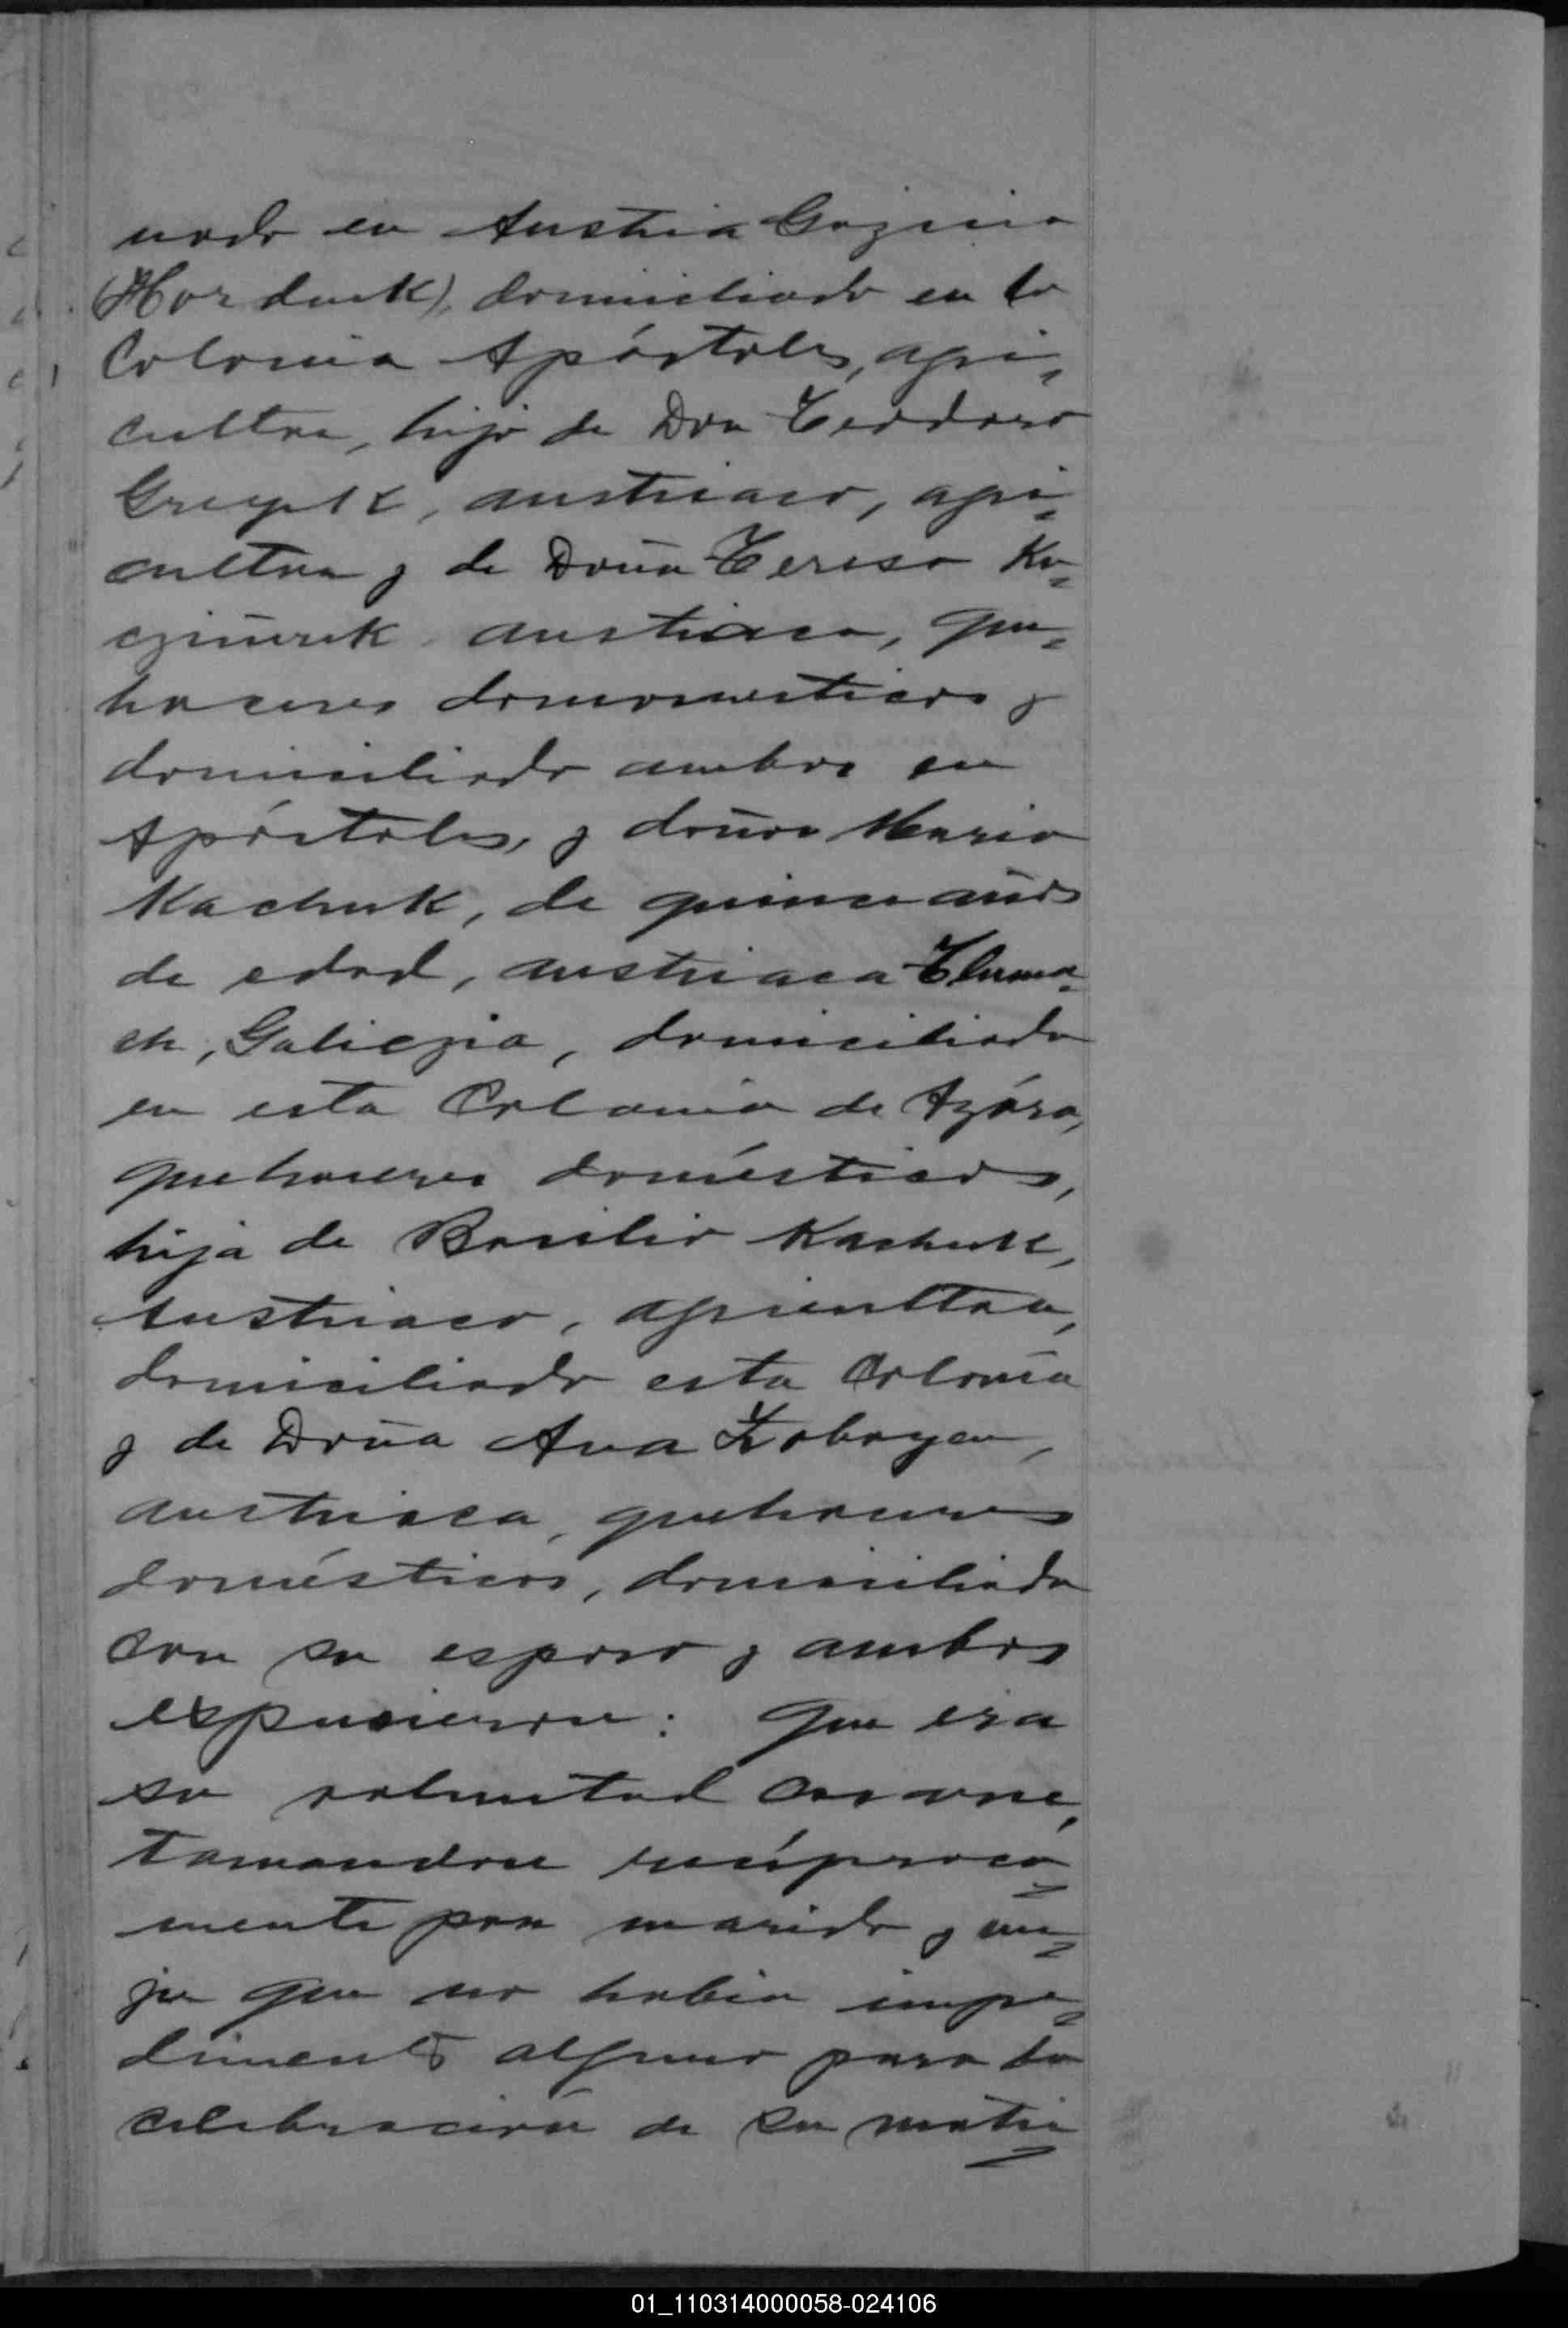 nado en Austria
(Horduk), domiciliado en la
Colonia Apóstoles, agri-
cultor, hijo de Don Teodoro
austriaco, agri-
cultor y de Doña Teresa Ko-
austriaca, que-
haceres domomesticos y
domiciliado ambos en
Apóstoles, y doña Maria
Kachuk, de quince años
de edad, austriaca Tluma-
ch, Galiczia, domiciliada
en esta Colonia de Azára,
quehaceres domésticos,
hija de Basilio Kachuk,
Austriaco, agricultor,
domiciliado esta Colonia
y de Doña Ana
austriaca, quehaceres
domésticos, domiciliada
con su esposo y ambos
expusieron: Que era
su voluntad casarse,
tomandose recíproca-
mente por marido y mu-
jer que no habia impe-
dimento alguno para la
celebración de su matri-
01_110314000058-024106